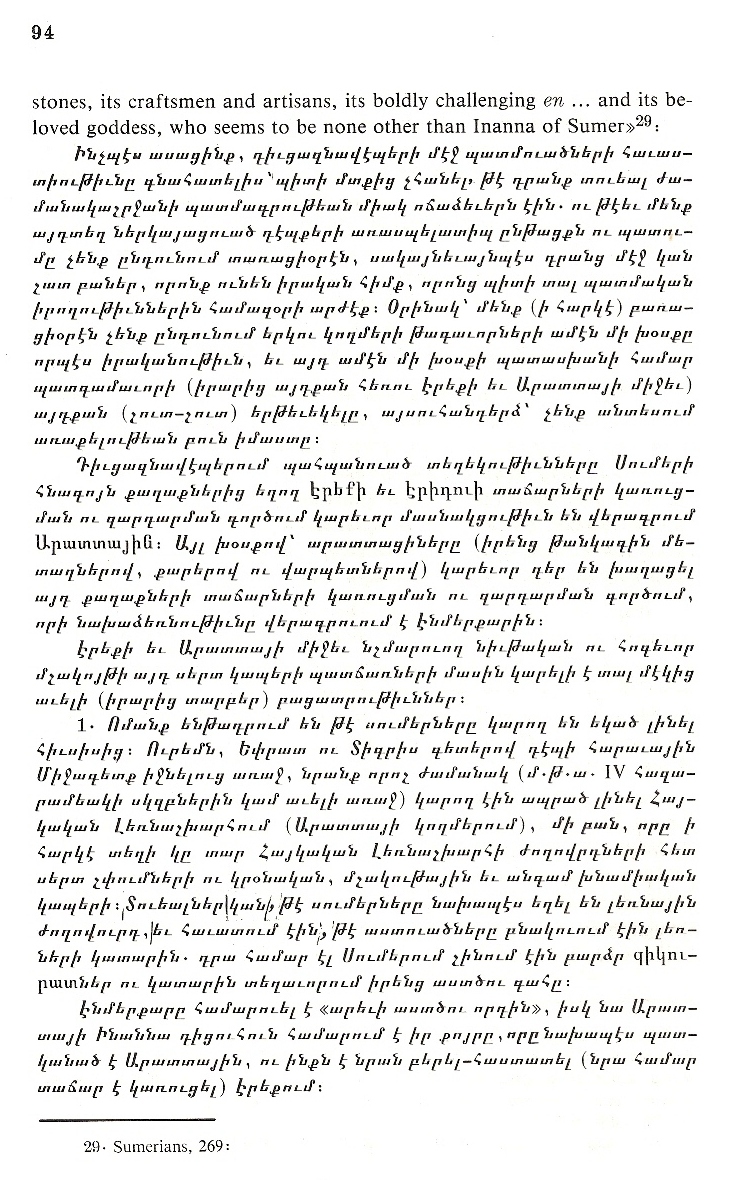 94
stones, its craftsmen and artisans, its boldly challenging en ... and its be-
loved goddess, who seems to be none other than Inanna of Sumer»29:
Ինչպէս ասացինք, դիւցազնավէպերի մէջ պատմուածների հաւաս-
տիութիւնը գնահատելիս՝ պիտի մտքից չհանել, թէ դրանք տուեալ ժա-
մանակաշրջանի պատմագրութեան միակ ոճաձեւերն էին. ու թէեւ մենք
այդտեղ ներկայացուած դէպքերի առասպելատիպ ընթացքն ու պատու-
մը չենք ընդունում տառացիօրէն, սակայնեւայնպէս դրանց մէջ կան
շատ բաներ, որոնք ունեն իրական հիմք, որոնց պիտի տալ պատմական
իրողութիւններին համազօրի արժէք: Օրինակ՝ մենք (ի հարկէ) բառա-
ցիօրէն չենք ընդունում երկու կողմերի թագաւորների ամէն մի խօսքը
որպէս իրականութիւն, եւ այդ ամէն մի խօսքի պատասխանի համար
պատգամաւորի (իրարից այդքան հեռու էրեքի եւ Արատտայի միջեւ)
այդքան (շուտ-շուտ) երթեւեկելը, այսուհանդերձ՝ չենք անտեսում
առաքելութեան բուն իմաստը:
Դիւցազնավէպերում պահպանուած տեղեկութիւնները Սումերի
հնագոյն քաղաքներից եղող էրեքի եւ էրիդուի տաճարների կառուց-
ման ու զարդարման գործում կարեւոր մասնակցութիւն են վերագրում
Արատտային: Այլ խօսքով՝ արատտացիները (իրենց թանկագին մե-
տաղներով, քարերով ու վարպետներով) կարեւոր դեր են խաղացել
այդ քաղաքների տաճարների կառուցման ու զարդարման գործում,
որի նախաձեռնութիւնը վերագրւում է էնմերքարին:
էրեքի եւ Արատտայի միջեւ նշմարուող նիւթական ու հոգեւոր
մշակոյթի այդ սերտ կապերի պատճառների մասին կարելի է տալ մէկից
աւելի (իրարից տարբեր) բացատրութիւններ:
1. Ոմանք ենթադրում են թէ սումերները կարող են եկած լինել
հիւսիսից: Ուրեմն, Եփրատ ու Տիգրիս գետերով դէպի հարաւային
Միջագետք իջնելուց առաջ, նրանք որոշ ժամանակ (մ.թ.ա. IV հազա-
րամեակի սկզբներին կամ աւելի առաջ) կարող էին ապրած լինել Հայ-
կական Լեռնաշխարհում (Արատտայի կողմերում), մի բան, որը ի
հարկէ տեղի կը տար Հայկական Լեռնաշխարհի ժողովրդների հետ
սերտ շփումների ու կրօնական, մշակութային եւ անգամ խնամիական
կապերի: Տուեալներ կան, թէ սումերները նախապէս եղել են լեռնային
ժողովուրդ, եւ հաւատում էին, թէ աստուածները բնակւում էին լեռ-
ների կատարին. դրա համար էլ Սումերում շինում էին բարձր զիկու-
րատներ ու կատարին տեղաւորում իրենց աստծու գահը:
էնմերքարը համարուել է «արեւի աստծու որդին», իսկ նա Արատ-
տայի Ինաննա դիցուհուն համարում է իր քոյրը, որը նախապէս պատ-
կանած է Արատտային, ու ինքն է նրան բերել-հաստատել (նրա համար
տաճար է կառուցել) էրեքում:
29. Sumerians, 269: